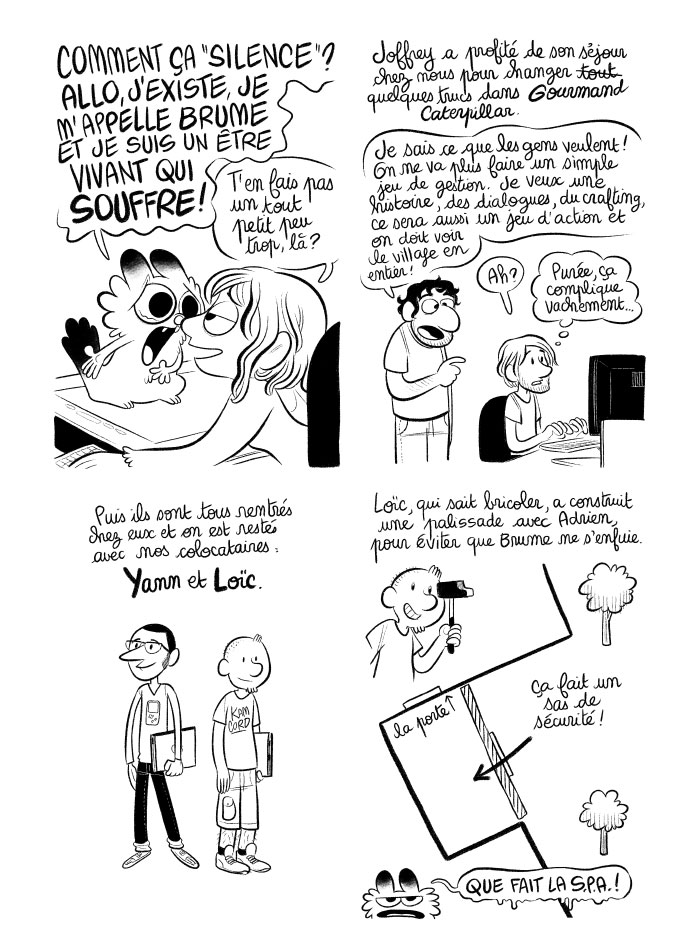 COMMENT ÇA "SILENCE"?
ALLO, J'EXISTE, JE
M'APPELLE BRUME
ET JE SUIS UN ÊTRE
VIVANT QUI
SOUFFRE!
T'en fais pas
un tout
petit peu
trop, là?
Joffrey a profité de son séjour
chez nous pour changer tout
quelques trucs dans Gourmand
Caterpillar.
Je sais ce que les gens veulent!
On ne va plus faire un simple
jeu de gestion. Je veux une
histoire, des dialogues, du crafting,
ce sera aussi un jeu d'action et
on doit voir
le village en
entier!
Ah?
Purée, ça
complique
vachement...
Puis ils sont tous rentrés
chez eux et on est resté
avec nos colocataires:
Yann et Loïc.
KAM
CORD
Loïc, qui sait bricoler, a construit
une palissade avec Adrien,
pour éviter que Brume ne s'enfuie.
la porte
Ça fait un
sas de
sécurité!
QUE FAIT LA S.P.A.!